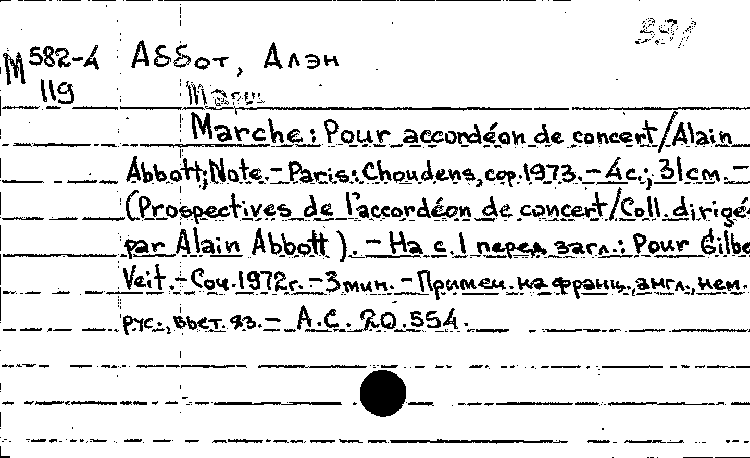 391
М 582-4 Аббот, Алэн
119 Марш
Marche: Pour accordéon de concert/Alain
Abbott; Note. - Paris: Choudens, cop. 1973. - 4 с.; 31 см. -
(Prospectives de l'accordéon de concert/Coll. dirigé
par Alain Abbott). - На с. 1 перед загл.: Pour Gilbe
Veit. - Соч. 1972г. - 3 мин. - Примеч. на франц., англ., нем.
рус., яз. - A.C. 20.554.